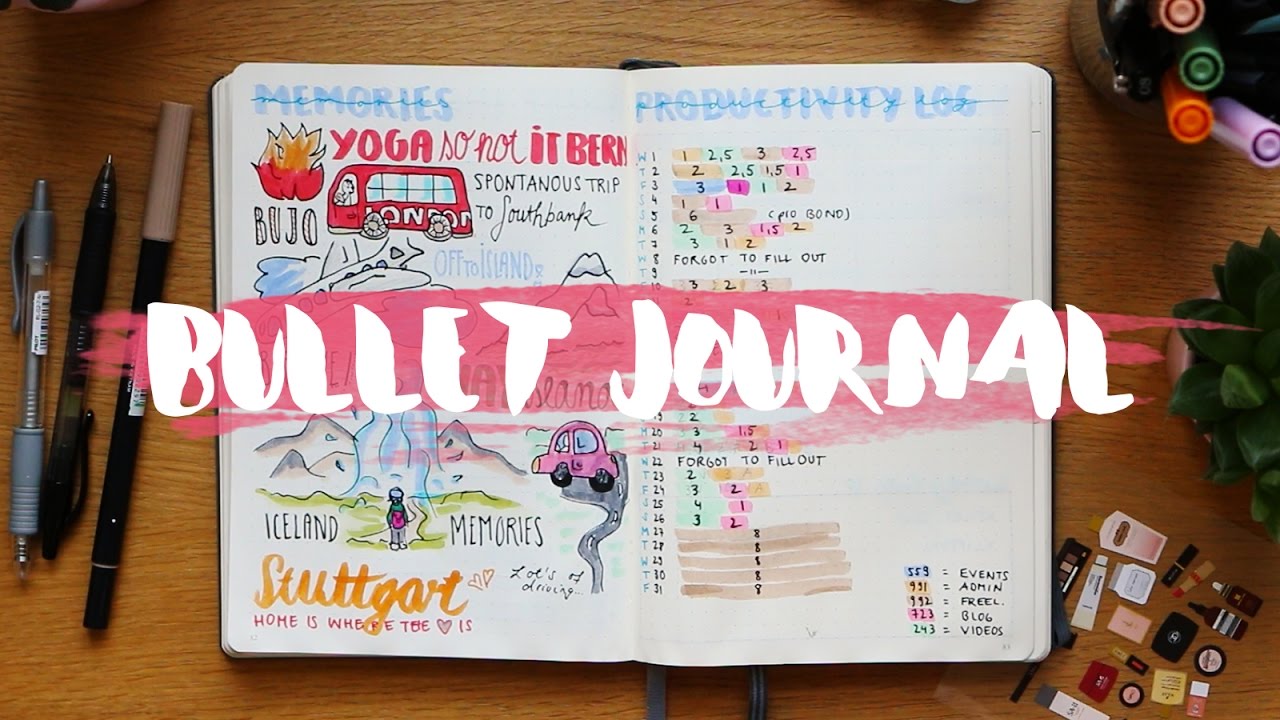 MEMORIES
YOGA so not IT BERN
BUJO
LONDON
SPONTANOUS TRIP
TO Southbank
OFF TO ISLAND
L
ICELAND MEMORIES
Stuttgart
Lot's of
driving...
HOME IS WHERE THE IS
PRODUCTIVITY LOG
productivity log
W 1 1 2,5 3 2,5
T 2 2 2,5 1,5 1
F 3 3 1 1 2
S 4 1 1
S 5 6 (p10 BOND)
M 6 2 3 1,5 2
T 7 3 1 2
W 8 FORGOT TO FILL OUT
T 9 —11—
10 3 2 3
BULLET JOURNAL
19 2
M 20 3 1,5
T 21 4 2 1
W 22 FORGOT TO FILL OUT
T 23 2 3 A
F 24 3 2 A
S 25 4 1
S 26 3 2
M 27 8
T 28 8
W 29 8
T 30 8
F 31 8
559 = EVENTS
991 = ADMIN
992 = FREEL.
723 = BLOG
243 = VIDEOS